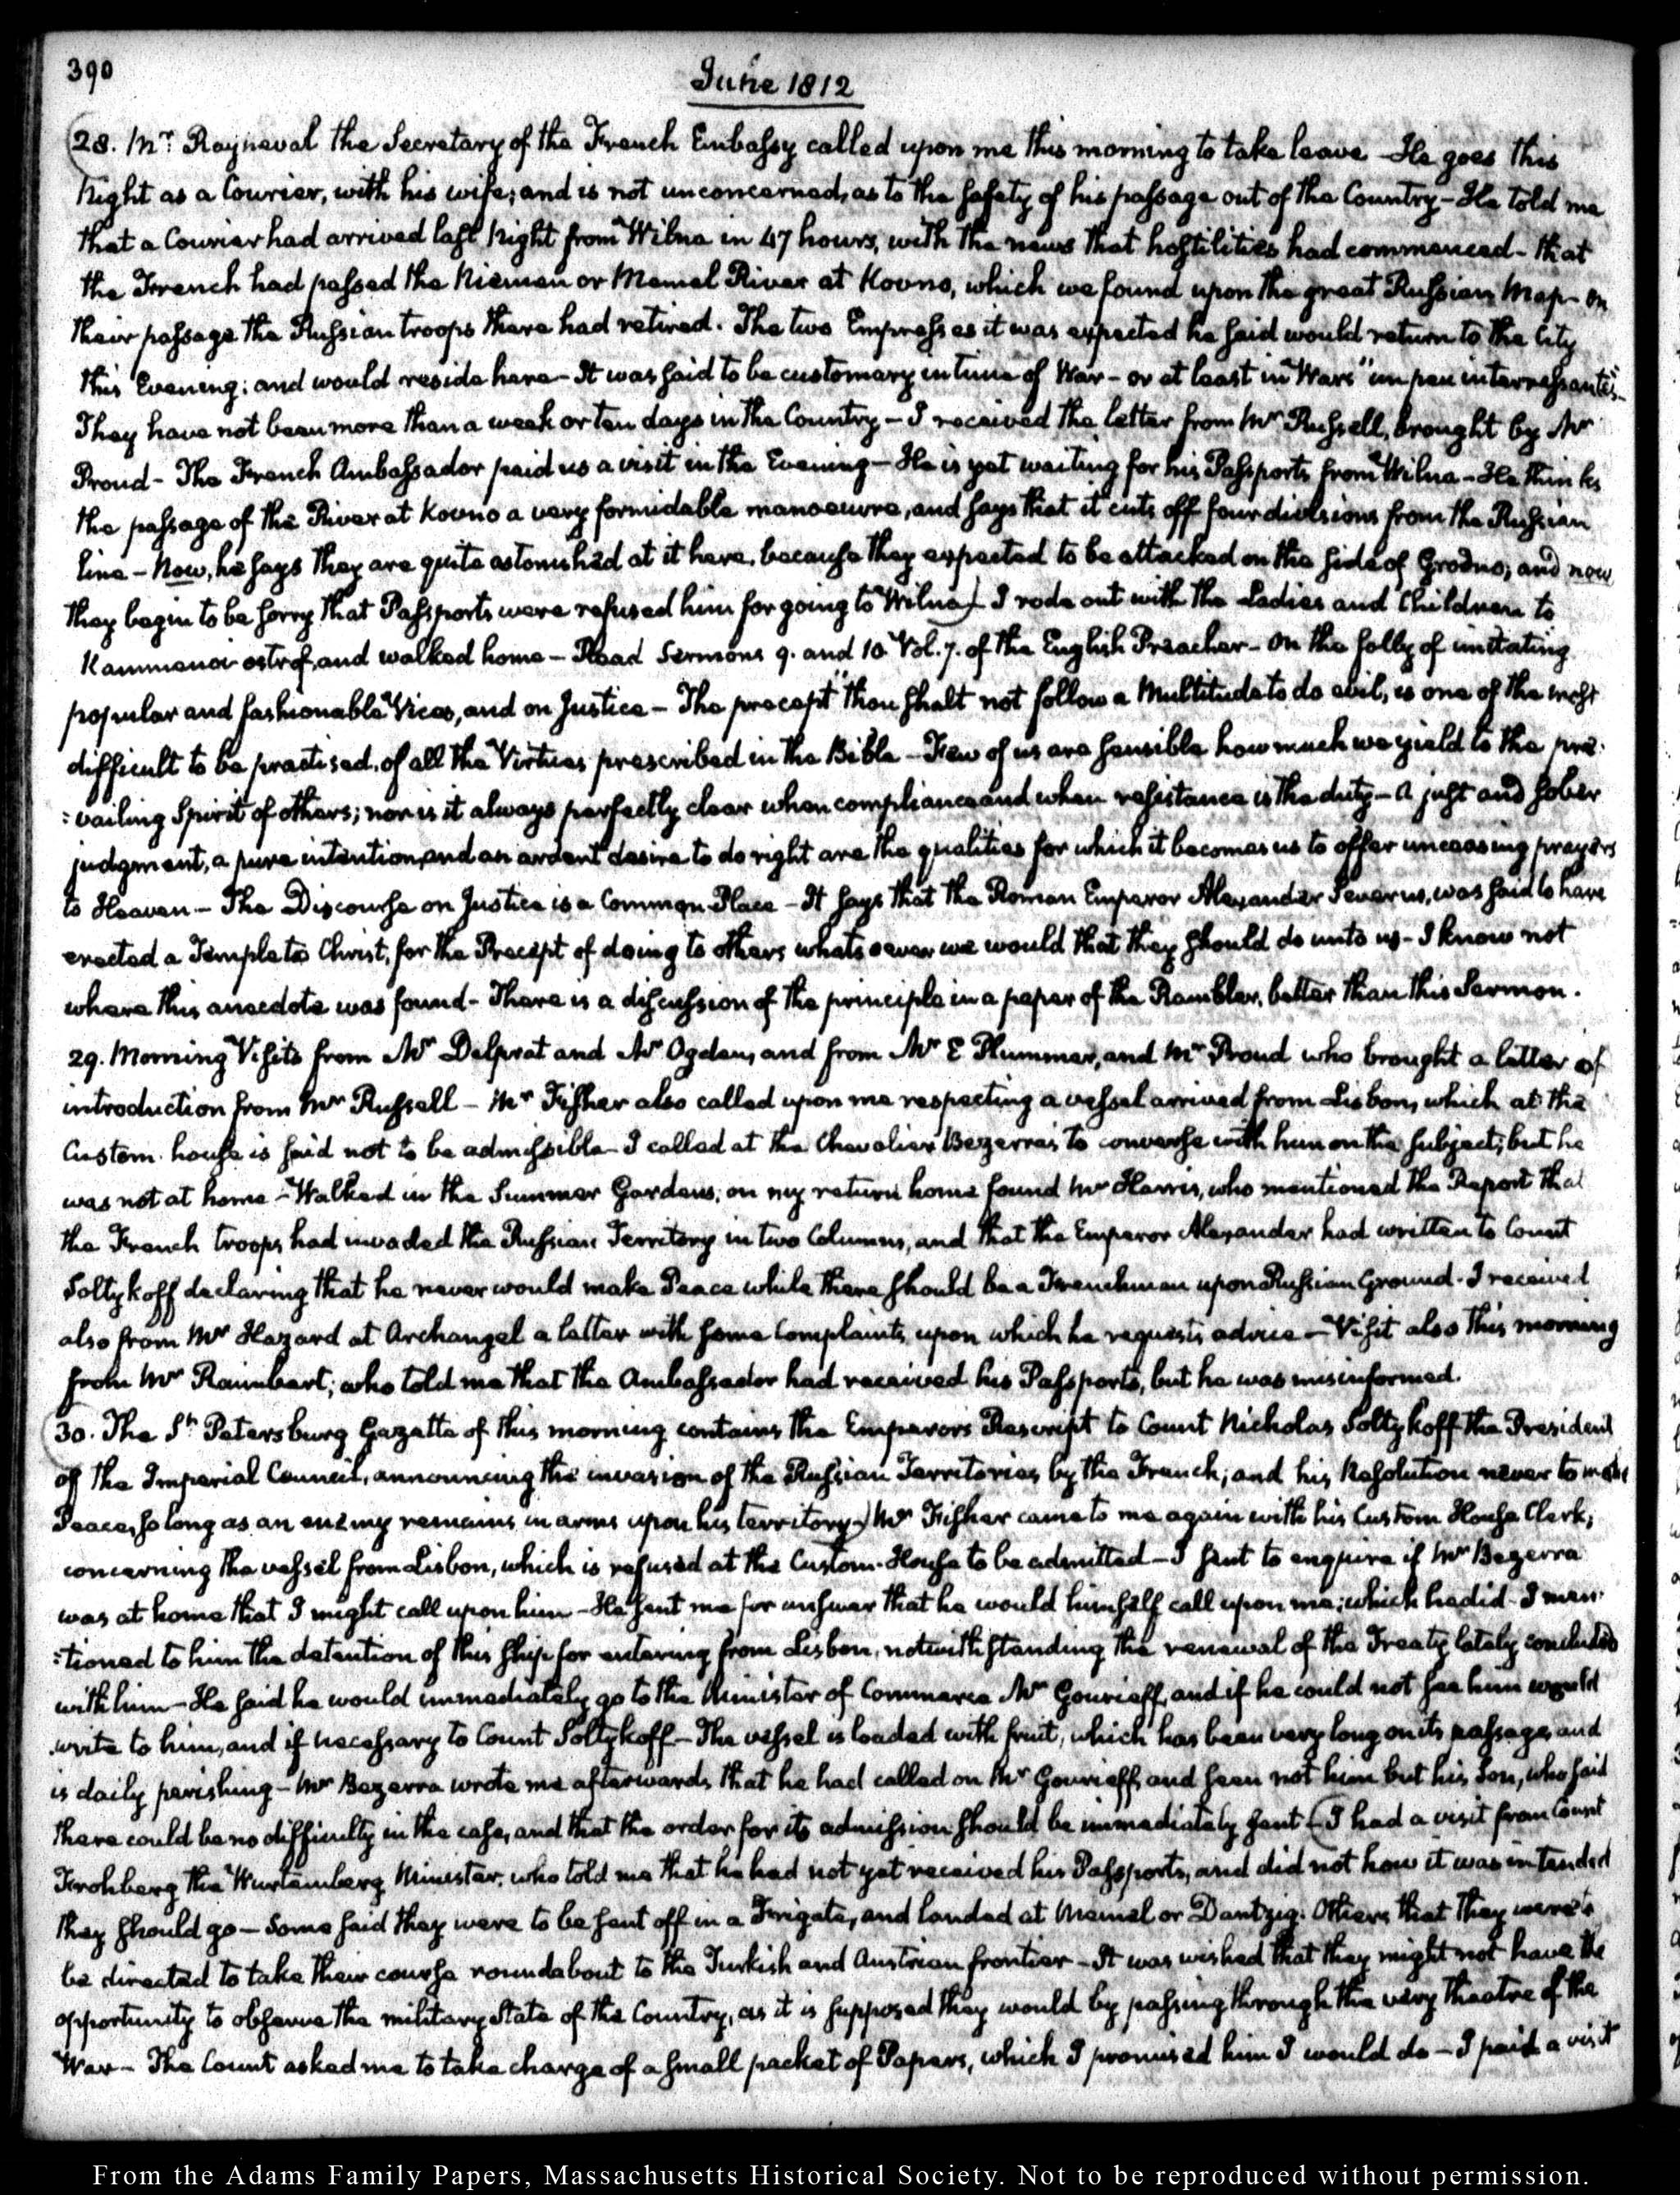 390
June 1812
28. Mr. Rayneval the Secretary of the French Embassy called upon me this morning to take leave - He goes this
Night as a Courier, with his wife; and is not unconcerned, as to the safety of his passage out of the Country - He told me
that a Courier had arrived last Night from Wilna in 47 hours, with the news that hostilities had commenced - that
the French had passed the Niemen or Memel River at Kovno, which we found upon the great Russian Map - On
their passage the Russian troops there had retired. The two Empresses it was expected he said would return to the City
this Evening; and would reside here - It was said to be customary in time of War - or at least in Wars "un peu interressantes"-
They have not been more than a week or ten days in the Country - I received the letter from Mr Russell, brought by Mr
Proud - The French Ambassador paid us a visit in the Evening - He is yet waiting for his Passports from Wilna - He thinks
the passage of the River at Kovno a very formidable manoeuvre, and says that it cuts off four divisions from the Russian
line - Now, he says they are quite astonished at it here, because they expected to be attacked on the side of Grodno; and now
they begin to be sorry that Passports were refused him for going to Wilna) - I rode out with the Ladies and Children to
Kammenoi ostrof, and walked home - Read Sermons 9. and 10 Vol. 7. of the English Preacher - On the folly of imitating
popular and fashionable Vices, and on Justice - The precept "thou shalt not follow a Multitude to do evil, is one of the most
difficult to be practised, of all the Virtues prescribed in the Bible - Few of us are sensible how much we yield to the pre-
:vailing Spirit of others; nor is it always perfectly clear when compliance and when resistance is the duty - A just and sober
judgment, a pure intention, and an ardent desire to do right are the qualities for which it becomes us to offer unceasing prayers
to Heaven - The Discourse on Justice is a Common Place - It says that the Roman Emperor Alexander Severus, was said to have
erected a Temple to Christ, for the Precept of doing to others whatsoever we would that they should do unto us - I know not
where this anecdote was found - There is a discussion of the principle in a paper of the Rambler, better than this Sermon.
29. Morning Visits from Mr Delprat and Mr Ogden, and from Mr E Plummer, and Mr Proud who brought a letter of
introduction from Mr Russell - Mr Fisher also called upon me respecting a vessel arrived from Lisbon, which at the
Custom house is said not to be admissible - I called at the Chevalier Bezerra's to converse with him on the subject; but he
was not at home - Walked in the Summer Gardens; on my return home found Mr Harris, who mentioned the Report that
the French troops had invaded the Russian Territory in two Columns, and that the Emperor Alexander had written to Count
Soltykoff declaring that he never would make Peace while there should be a Frenchman upon Russian Ground. I received
also from Mr Hazard at Archangel a letter with some Complaints, upon which he requests advice - Visit also this morning
from Mr Raimbert; who told me that the Ambassador had received his Passports, but he was misinformed.
30. The St Petersburg Gazette of this morning contains the Emperors Rescript to Count Nicholas Soltykoff the President
of the Imperial Council, announcing the invasion of the Russian Territories by the French; and his Resolution never to make
Peace, so long as an enemy remains in arms upon his territory) Mr Fisher came to me again with his Custom House Clerk,
concerning the vessel from Lisbon, which is refused at the Custom-House to be admitted - I sent to enquire if Mr Bezerra
was at home that I might call upon him - He sent me for answer that he would himself call upon me; which he did - I men-
:tioned to him the detention of this ship for entering from Lisbon, notwithstanding the renewal of the Treaty lately concluded
with him - He said he would immediately go to the Minister of Commerce Mr Gourieff, and if he could not see him would
write to him, and if necessary to Count Soltykoff - The vessel is loaded with fruit, which has been very long on its passage, and
is daily perishing - Mr Bezerra wrote me afterwards that he had called on Mr Gourieff, and seen not him but his Son, who said
there could be no difficulty in the case, and that the order for its admission should be immediately sent - (I had a visit from Count
Frohberg the Wurtemberg Minister, who told me that he had not yet received his Passports, and did not how it was intended
they should go - Some said they were to be sent off in a Frigate, and landed at Memel or Dantzig. Others that they were to
be directed to take their course roundabout to the Turkish and Austrian frontier - It was wished that they might not have the
opportunity to observe the military State of the Country, as it is supposed they would by passing through the very theatre of the
War - The Count asked me to take charge of a small packet of Papers, which I promised him I would do - I paid a visit
From the Adams Family Papers, Massachusetts Historical Society. Not to be reproduced without permission.